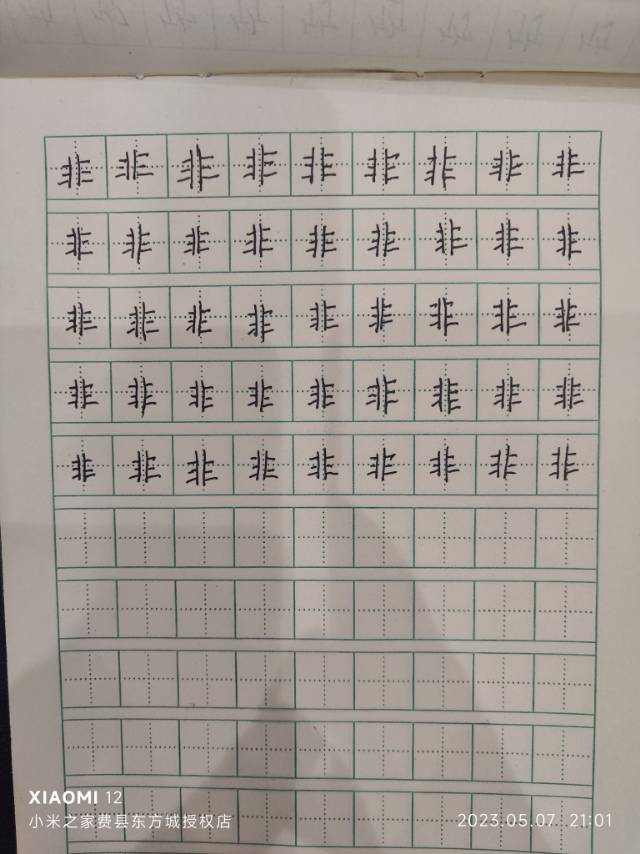 非非非非非非非非非
非非非非非非非非非
非非非非非非非非非
非非非非非非非非非
非非非非非非非非非
XIAOMI 12
小米之家费县东方城授权店 2023.05.07 21:01